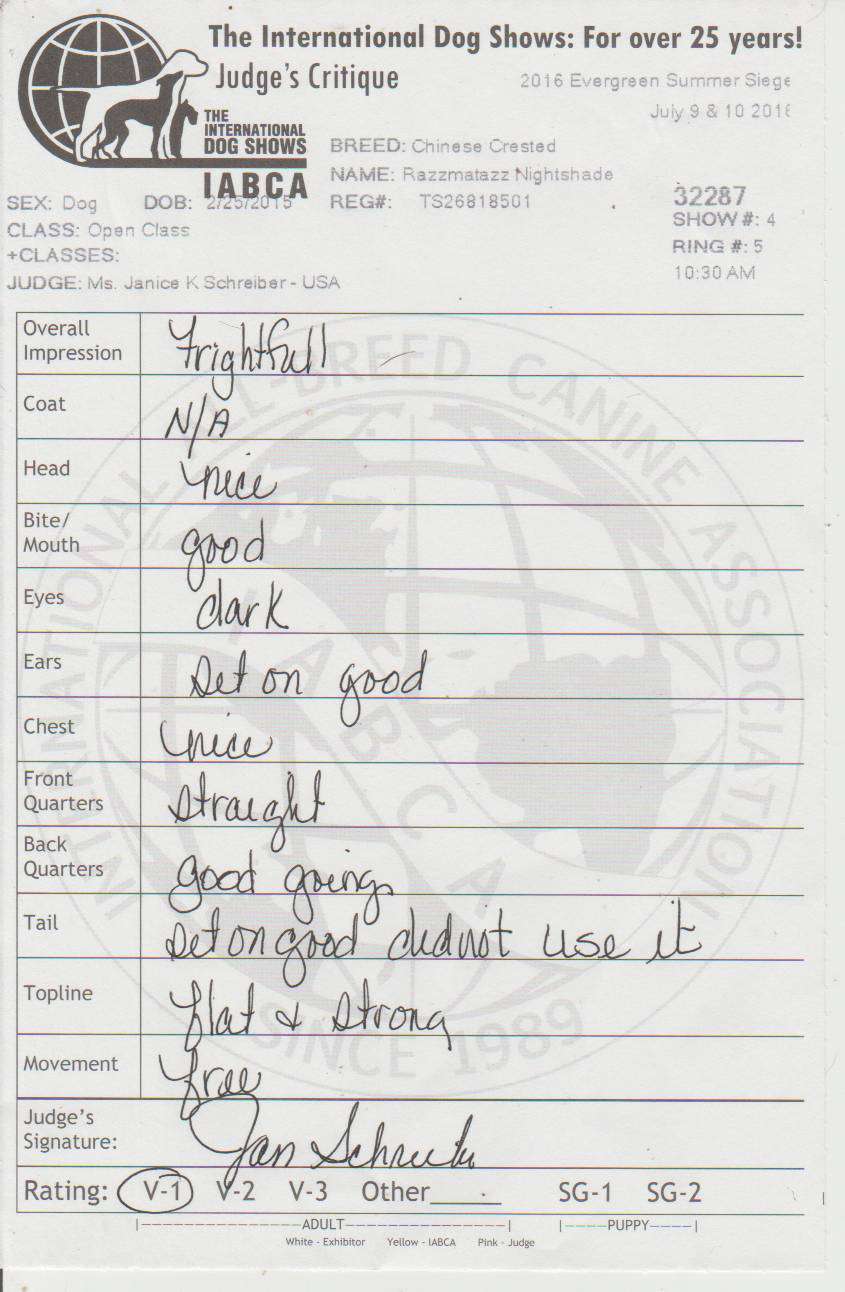 The International Dog Shows: For over 25 years!
Judge's Critique
2016 Evergreen Summer Siege
July 9 & 10 2016
THE
INTERNATIONAL
DOG SHOWS
IABCA
BREED: Chinese Crested
NAME: Razzmatazz Nightshade
SEX: Dog DOB: 2/25/2015 REG#: TS26818501
32287
SHOW #: 4
CLASS: Open Class
RING #: 5
+CLASSES:
10:30 AM
JUDGE: Ms. Janice K Schreiber - USA
INTERNATIONAL ALL-BREED CANINE ASSOCIATION
IABCA
SINCE 1989
Overall
Impression Frightfull
Coat N/A
Head nice
Bite/
Mouth good
Eyes dark
Ears set on good
Chest nice
Front
Quarters straight
Back
Quarters good going
Tail set on good did not use it
Topline flat & strong
Movement free
Judge's
Signature: Jan Schreiber
Rating: V-1 V-2 V-3 Other____ SG-1 SG-2
|----ADULT----| |----PUPPY----|
White - Exhibitor Yellow - IABCA Pink - Judge